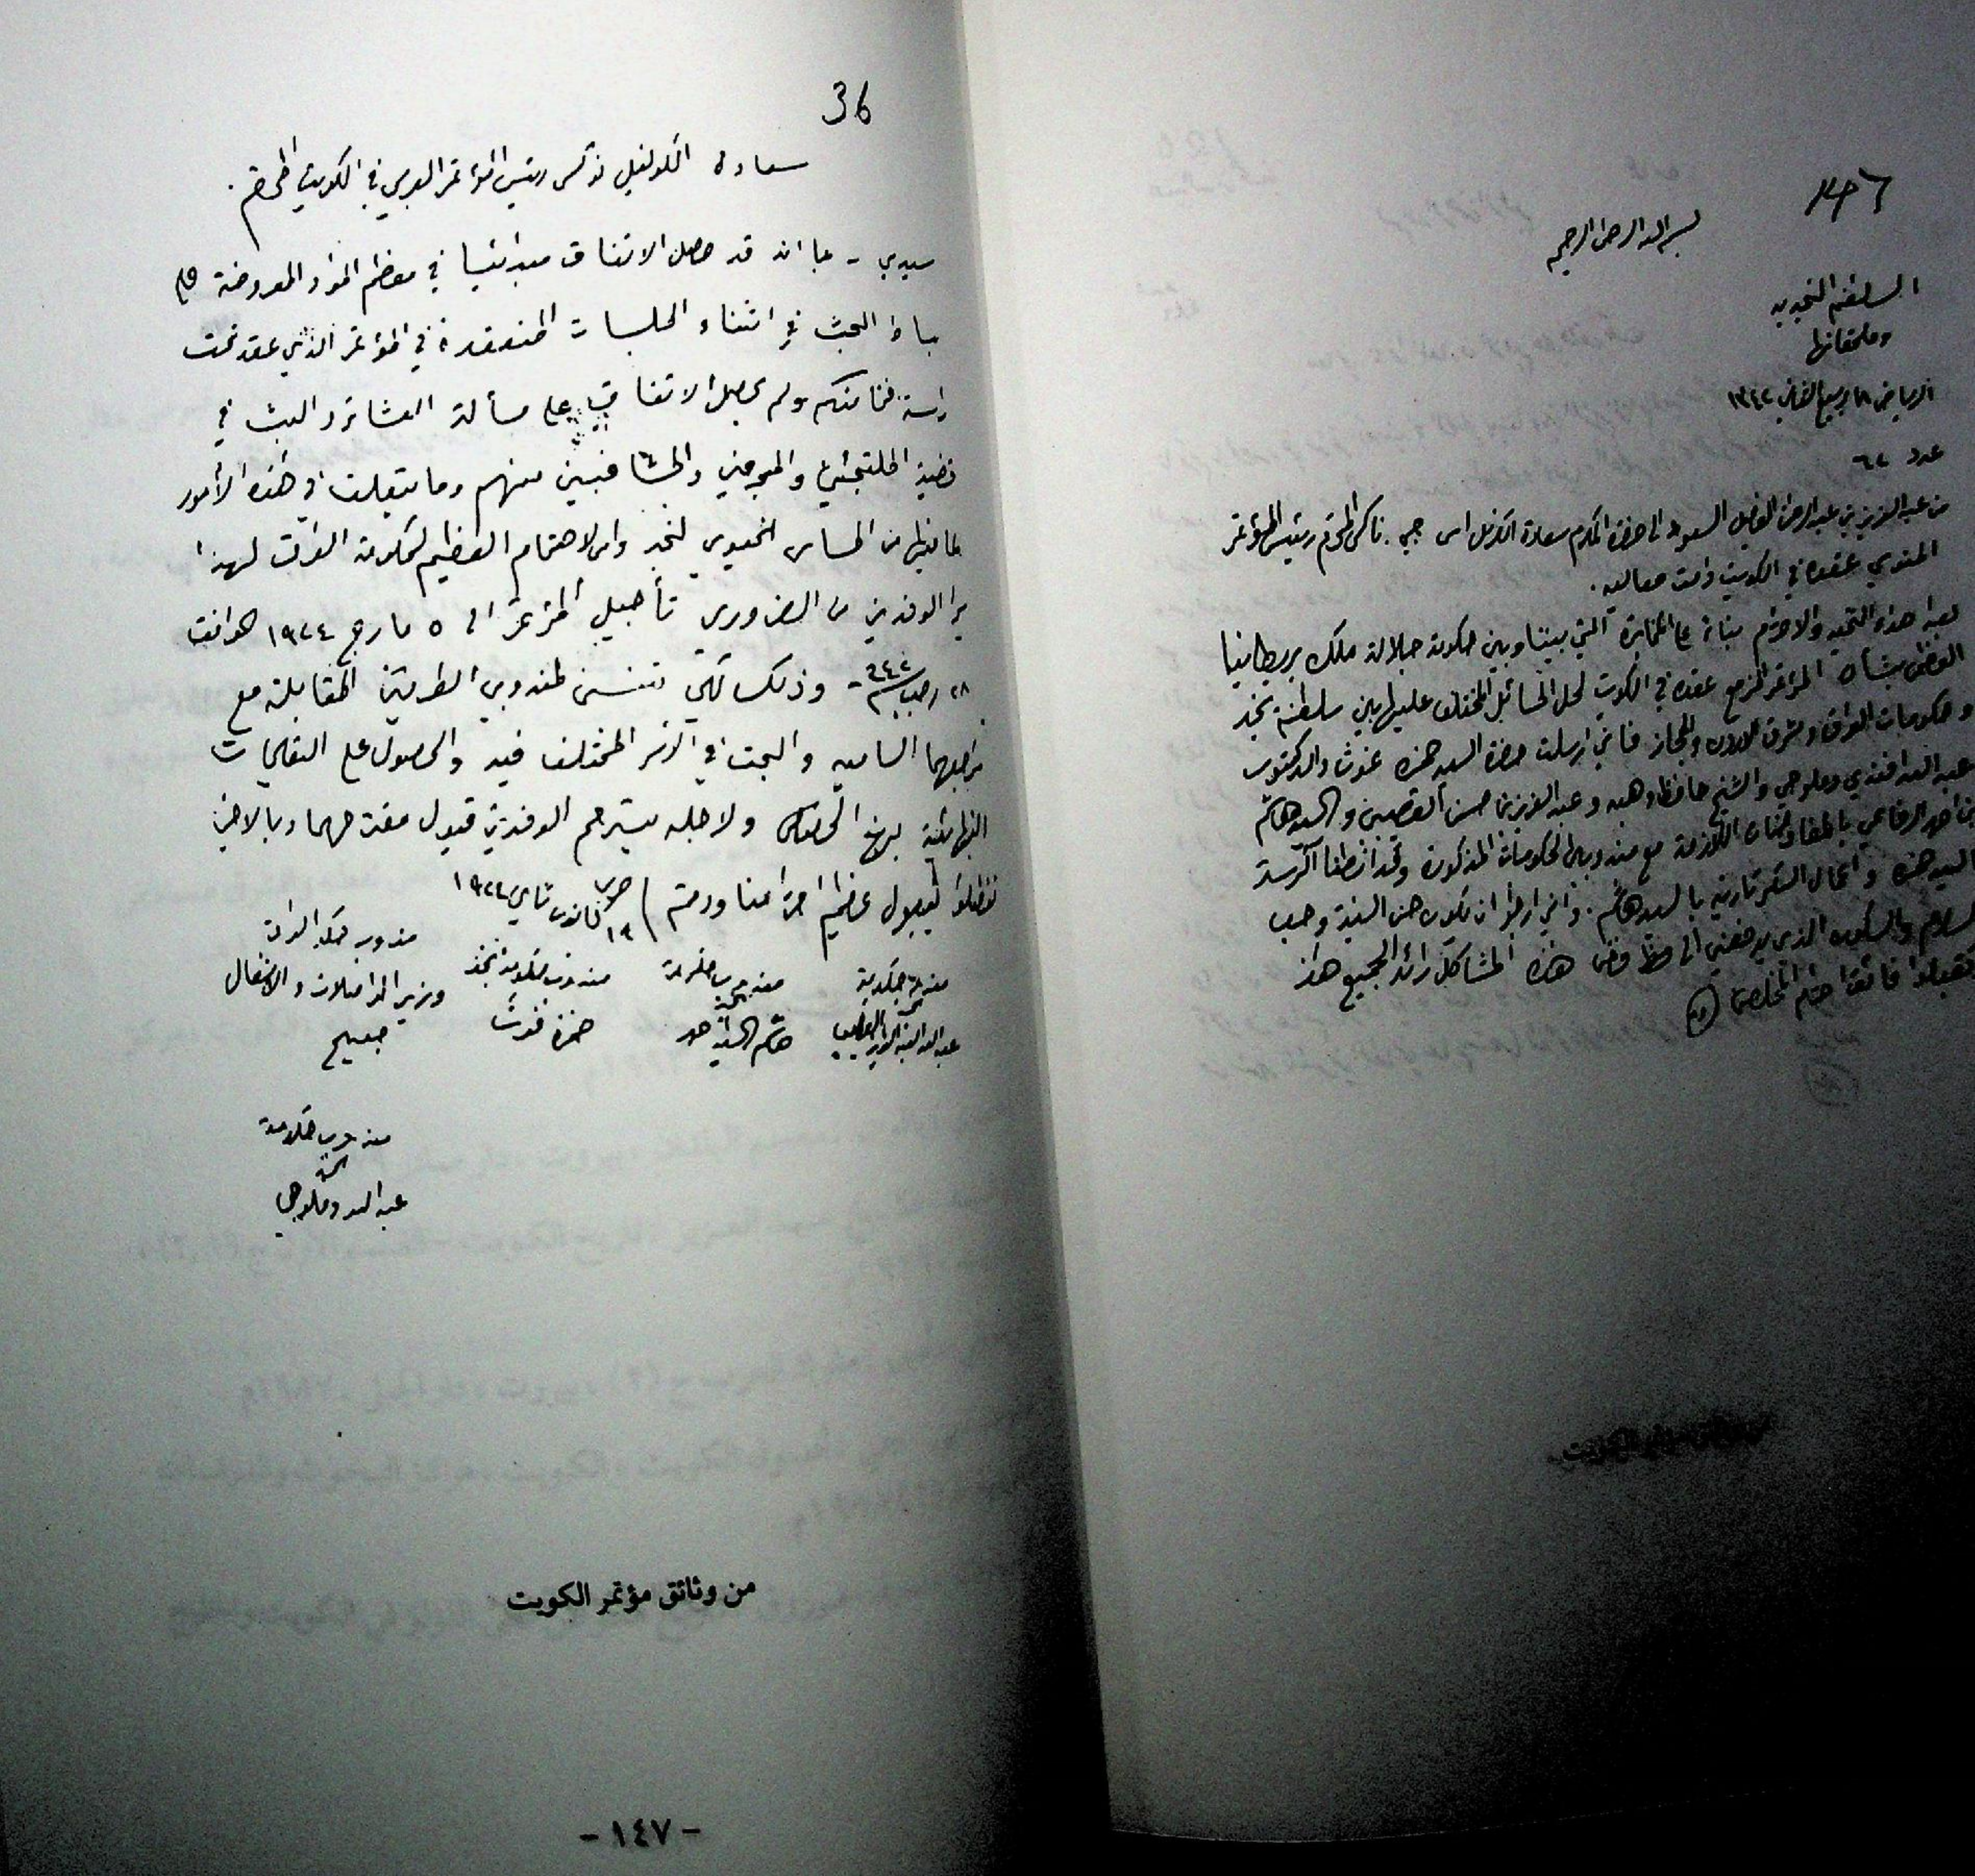 بسم الله الرحمن الرحيم
السلطنة النجدية
وملحقاتها
الرياض ١٨ ربيع الثاني ١٣٤٢
عدد ٦٢
من عبد العزيز بن عبد الرحمن الفيصل السعود الى حضرة المكرم سعادة الكرنل اس جي. ناكس المحترم رئيس المؤتمر
المنوي عقده في الكويت دامت معاليه.
بعد اهداء التحية والاحترام بناء على المخابرة التي بيننا وبين حكومة جلالة ملك بريطانيا
العظمى بشأن المؤتمر المزمع عقده في الكويت لحل المسائل المختلف عليها بين سلطنة نجد
وحكومات العراق وشرق الاردن والحجاز فاني ارسلت حضرة السيد حمزه غوث والدكتور
عبد الله افندي دملوجي والشيخ حافظ وهبه وعبد العزيز بن حسن القصيبي والسيد هاشم
بن احمد الرفاعي بالمفاوضات اللازمة مع مندوبي الحكومات المذكورة وقد انطنا الرئاسة
السيد حمزه واعمال السكرتارية بالسيد هاشم. واني ارجو ان تكون حسن النية وحب
السلام والسكون الذي يدفعني الى فض هذه المشاكل رائد الجميع هذا
وتقبلوا فائق احترام المخلص
36
سعادة الكولونيل نوكس رئيس المؤتمر العربي في الكويت المحترم.
سيدي - بما انه قد حصل الاتفاق مبدئيا في معظم المواد المعروضة على
بساط البحث في اثناء الجلسات المنعقدة في المؤتمر الذي عقد تحت
رئاسة فخامتكم ولم يحصل الاتفاق على مسألة العشائر والبث في
قضية الملتجئين والمجرمين والمشاغبين منهم وما يتعلق في هذه الأمور
لما فيها من المساس الحيوي لنجد والاهتمام العظيم لحكومة العراق لهذا
يرا الوفدين من الضروري تأجيل المؤتمر الى ٥ مارچ ١٩٢٤ الموافق
٢٨ رجب سنة ٣٤٢ - وذلك لكي يتسنى لمندوبي الطرفين المقابلة مع
مراجعهما السامية والبحث في الامر المختلف فيه والحصول على التعليمات
النهائية بهذا الخصوص ولاجله يسترحم الوفدين قبول مقترحهما وبالاخير
تفضلوا بقبول عظيم احترامنا ودمتم حرر ١٩ كانون ثاني ١٩٢٤
مندوب حكومة العراق
وزير المواصلات والاشغال
صبيح
مندوب حكومة نجد
حمزة غوث
مندوب حكومة نجد
هاشم السيد احمد
مندوب حكومة نجد
مندوب حكومة
نجد
عبد الله دملوجي
من وثائق مؤتمر الكويت
- ١٤٧ -